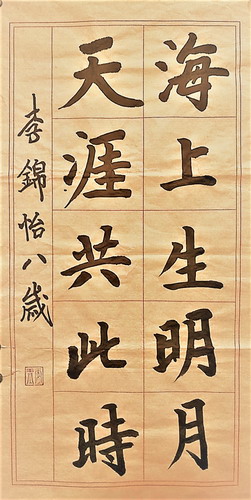 海上生明月
天涯共此時
李錦怡八歲